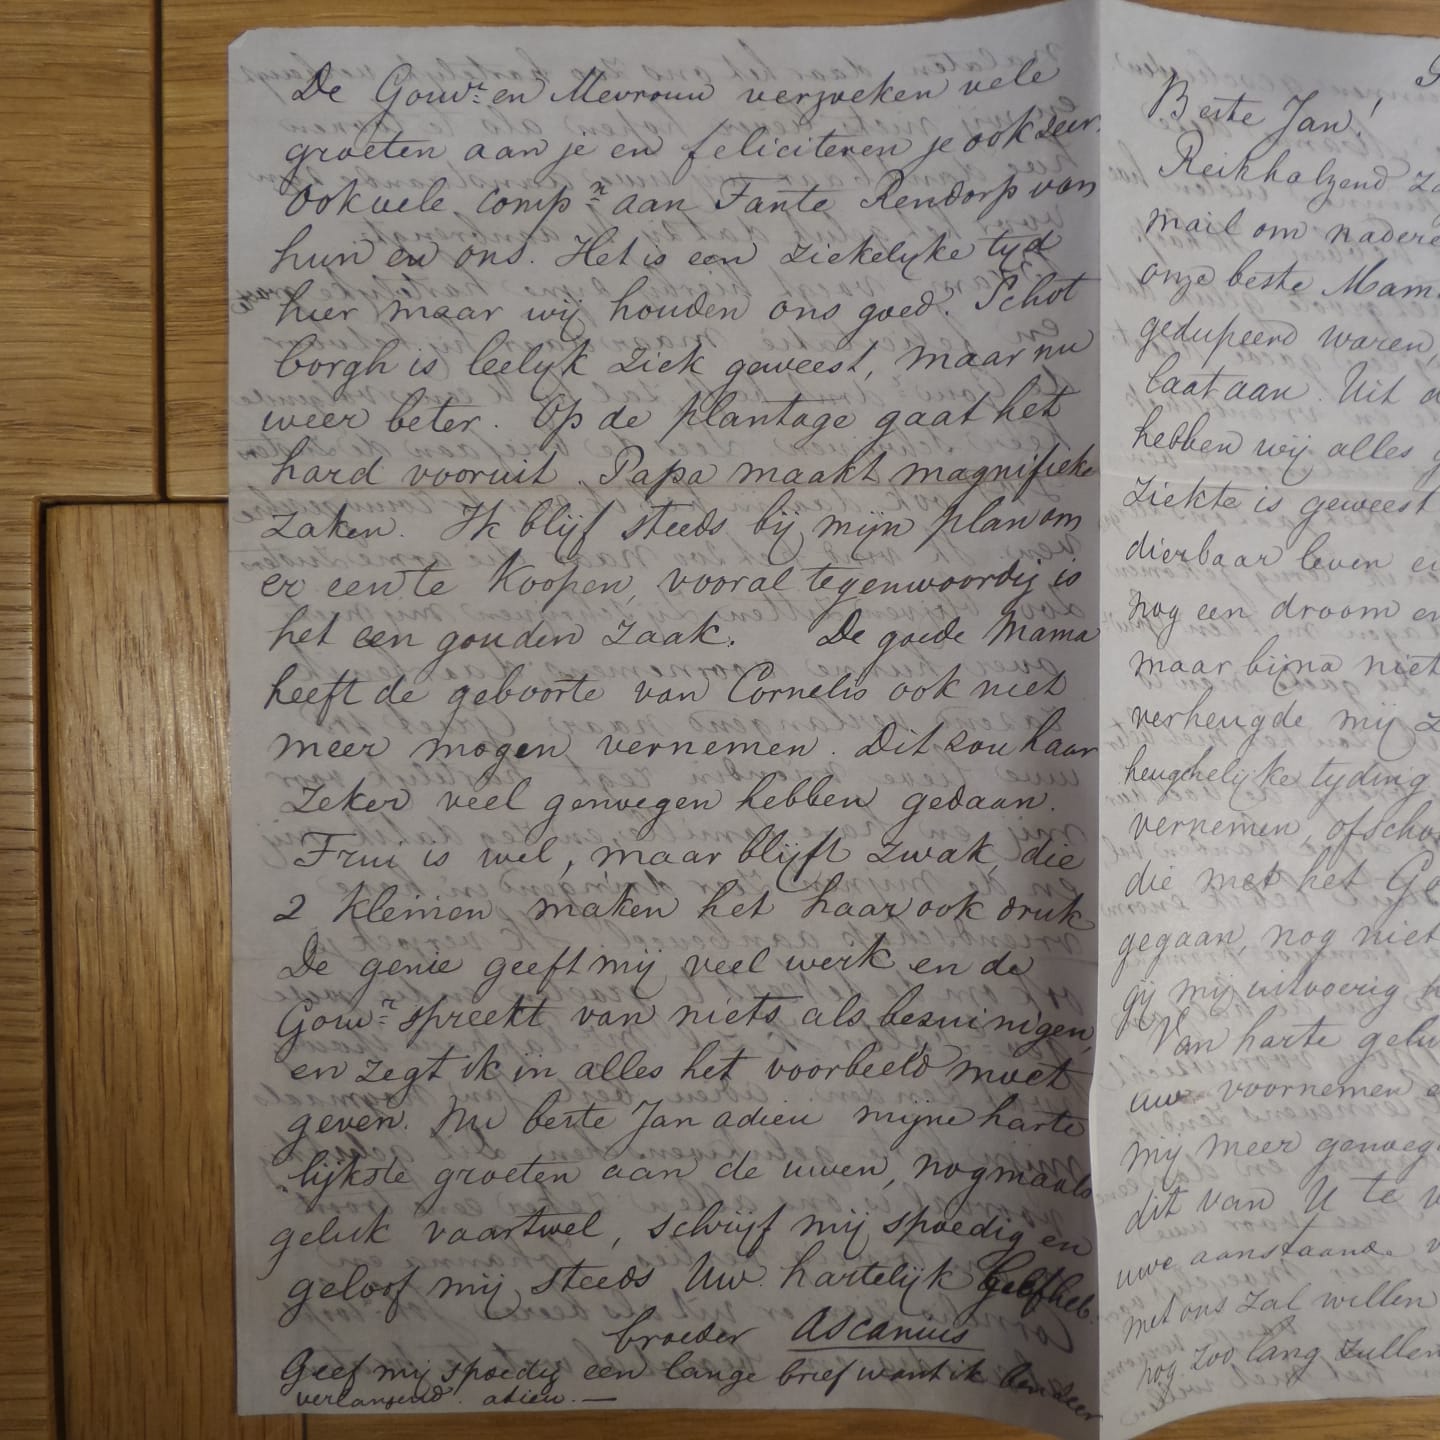 De Gouwr. en Mevrouw verzoeken vele
groeten aan je en feliciteren je ook zeer.
Ook vele compn. aan Tante Rendorp van
hun en ons. Het is een ziekelyke tyd
hier maar wij houden ons goed. Schot
borgh is leelyk ziek geweest, maar nu
weer beter. Op de plantage gaat het
hard vooruit. Papa maakt magnifieke
zaken. Ik blijf steeds bij mijn plan om
er een te koopen, vooral tegenwoordig is
het een gouden zaak. De goede Mama
heeft de geboorte van Cornelis ook niet
meer mogen vernemen. Dit zou haar
zeker veel genoegen hebben gedaan.
Frui is wel, maar blijft zwak, die
2 kleinen maken het haar ook druk
De genie geeft mij veel werk en de
Gouwr. spreekt van niets als bezuinigen,
en zegt ik in alles het voorbeeld moet
geven. Nu beste Jan adieu mijne harte
lijkste groeten aan de uwen, nogmaals
geluk vaartwel, schrijf mij spoedig en
geloof mij steeds Uw hartelijk liefheb.
broeder Ascanius
Geef mij spoedig een lange brief want ik ben zeer
verlangend. adieu. —
Beste Jan!
Reikhalzend
mail om nadere
onze beste Mam
gedupeerd waren,
laat aan. Uit
hebben wij alles
ziekte is geweest
dierbaar leven
nog een droom
maar bijna niet
verheugde mij
heugchelyke tyding
vernemen, ofscho
die met het
gegaan, nog niet
gij mij uitvoerig
Van harte gelu
uw voornemen
mij meer genoeg
dit van U te
uwe aanstaande
met ons zal willen
nog zoo lang zullen